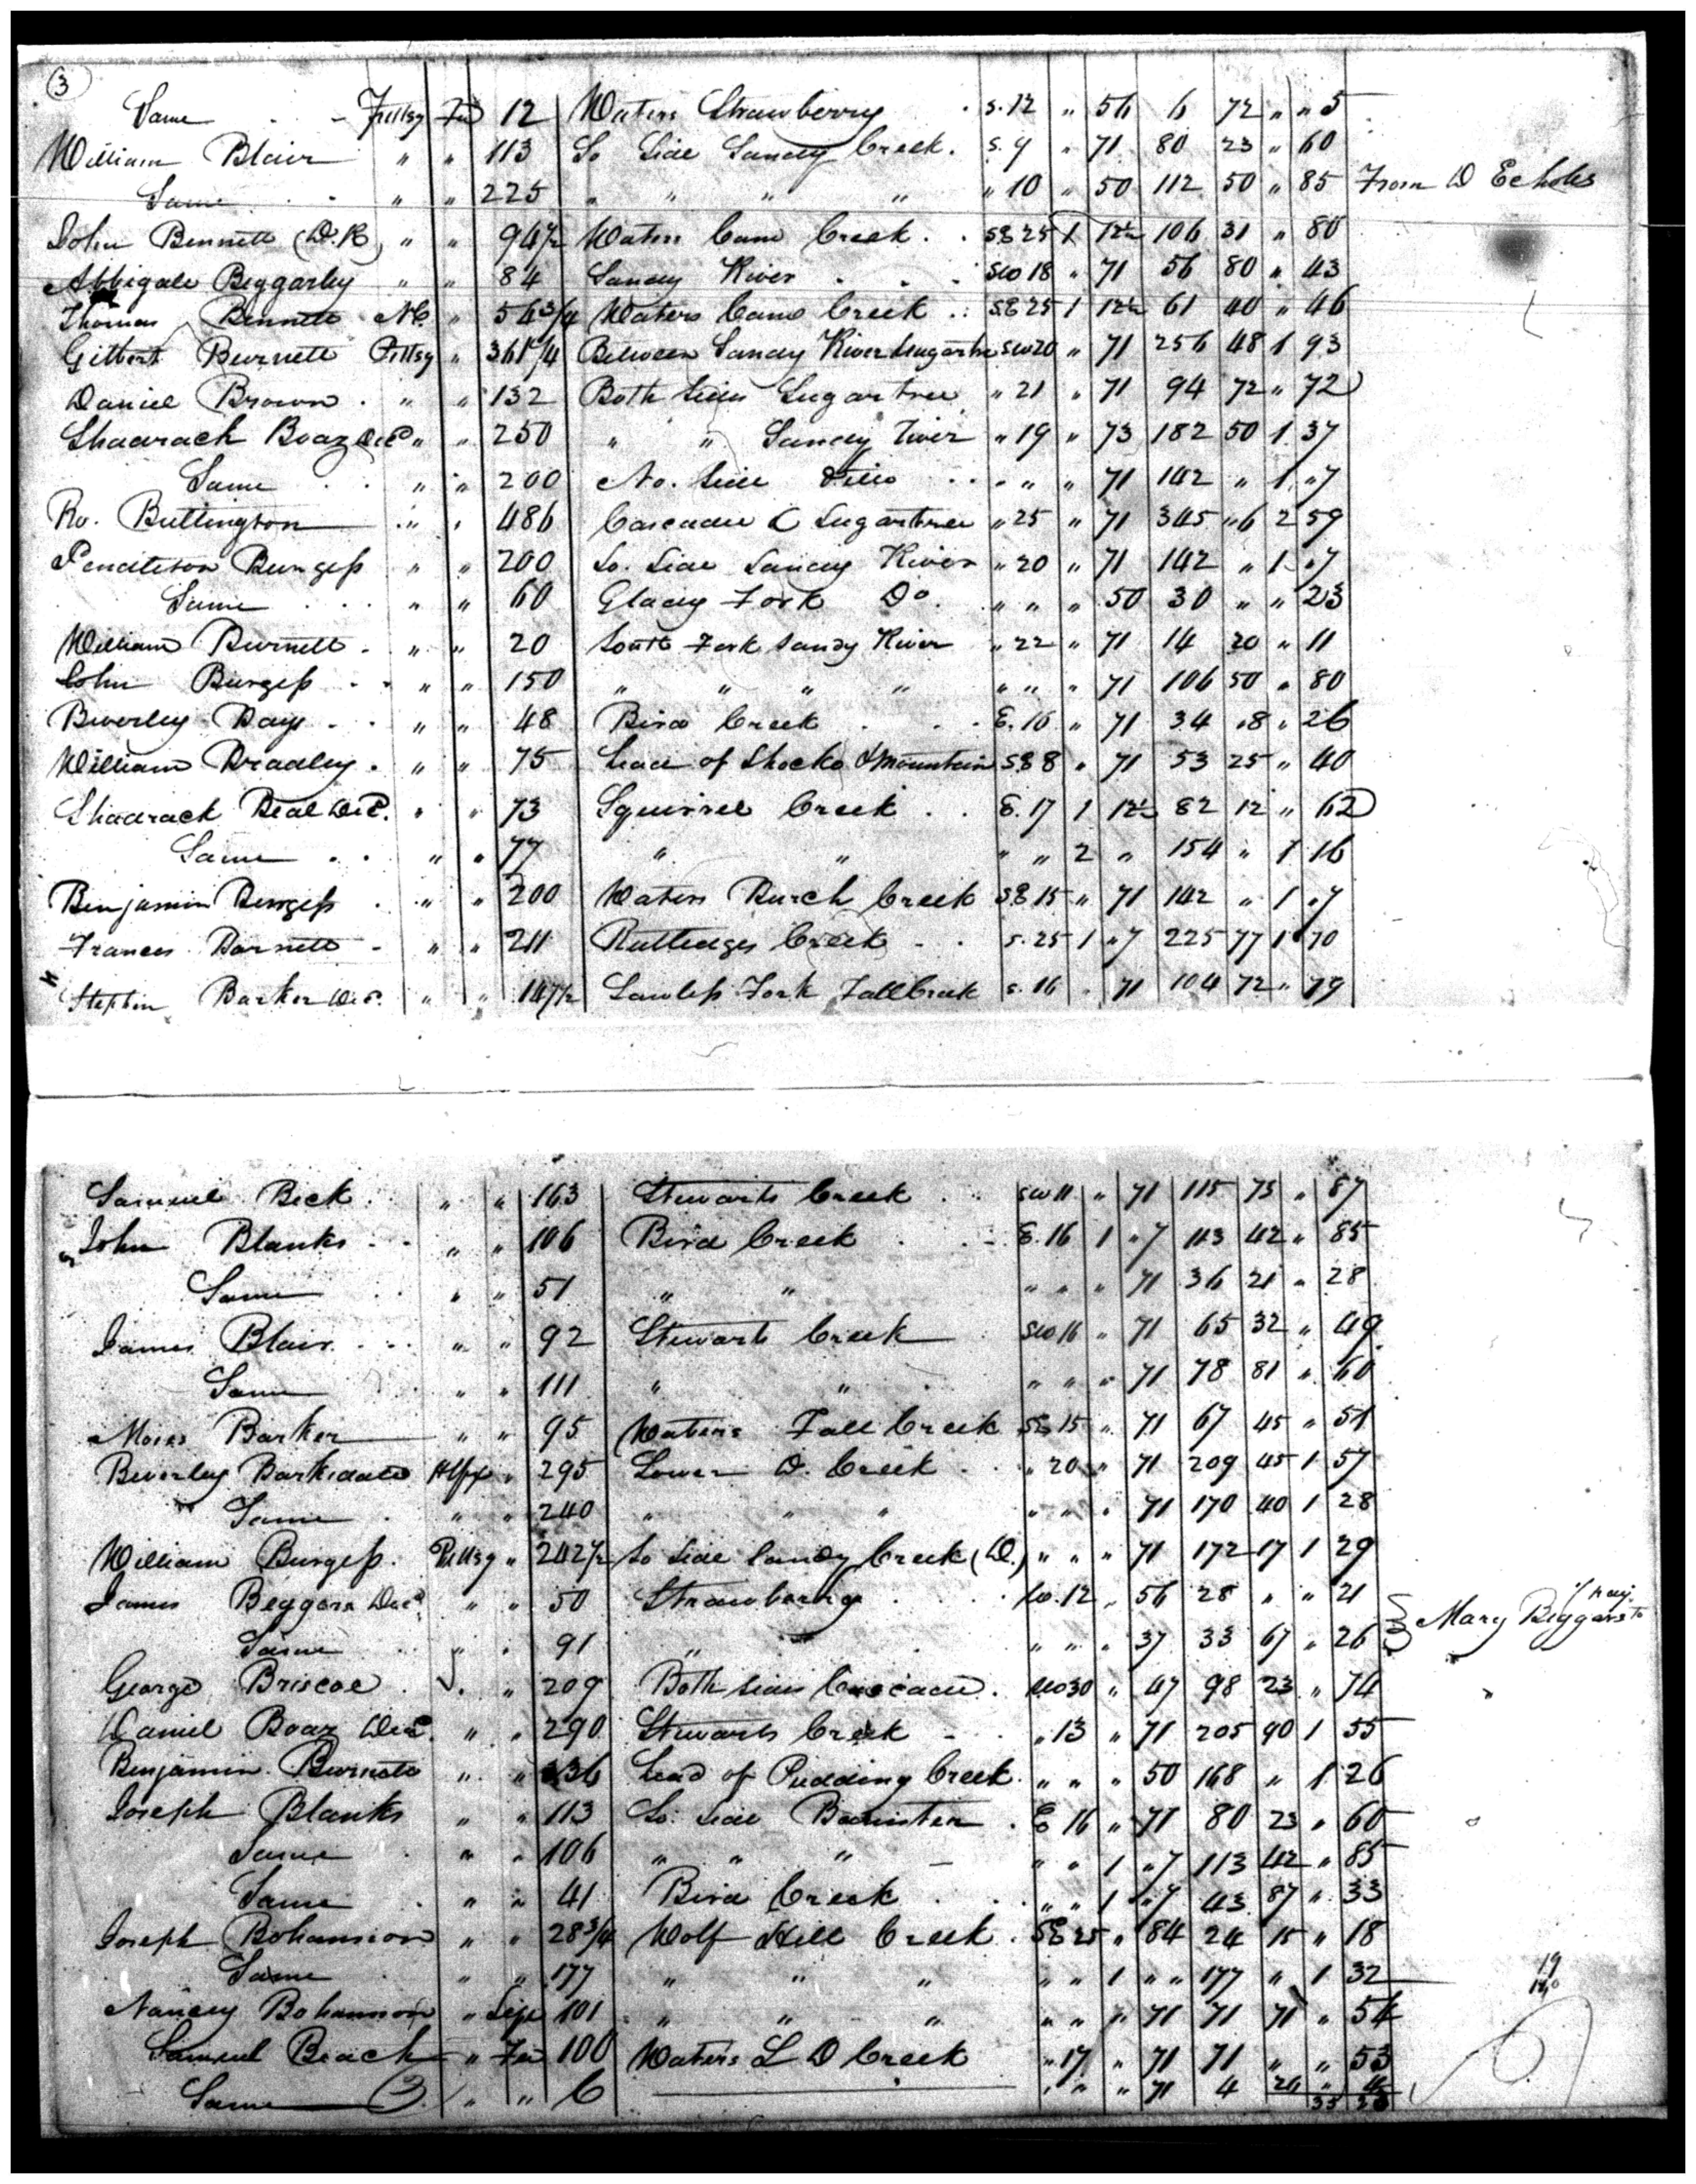 3
Same . . Pittsy Fee 12 Waters Strawberry . S. 12 " 56 6 72 " " 5
William Blair " " 113 So Side Sandy Creek . S. 9 " 71 80 23 " 60
Same . . " " 225 " " " " " 10 " 50 112 50 " 85 From D Echoles
John Bennett (D.R) " " 94 1/2 Waters Cane Creek . . SE 25 1 12 1/2 106 31 " 80
Abbigale Beggarly " " 84 Sandy River . . . SW 18 " 71 56 80 " 43
Thomas Bennett NC. " 54 3/4 Waters Cane Creek . : SE 25 1 12 1/2 61 40 " 46
Gilbert Burnett Pittsy " 361 1/4 Between Sandy River & Sugartre SW 20 " 71 256 48 1 93
Daniel Brown . " " 132 Both Sides Sugartree " 21 " 71 94 72 " 72
Shadrack Boaz Decd " " 250 " " Sandy River " 19 " 73 182 50 1 37
Same . . " " 200 No. Side Ditto . . " " " 71 142 " 1 " 7
Ro. Bullington " " 486 Cascade & Sugartree " 25 " 71 345 " 6 2 59
Pendleton Burgess " " 200 So. Side Sandy River " 20 " 71 142 " 1 " 7
Same . . . " " 60 Glady Fork Do. " " " 50 30 " " 23
William Burnett . " " 20 South Fork Sandy River " 22 " 71 14 20 " 11
John Burgess . . " " 150 " " " " " " " 71 106 50 " 80
Beverley Bays . . " " 48 Bird Creek . . . E. 16 " 71 34 " 8 " 26
William Bradley . " " 75 Head of Shocko & Mountain SE 8 " 71 53 25 " 40
Shadrack Beal Decd. " " 73 Squirrel Creek . . E. 17 1 12 1/2 82 12 " 62
Same . . " " 77 " " " " 2 " 154 " 1 16
Benjamin Burgess . " " 200 Waters Burch Creek SE 15 " 71 142 " 1 " 7
Frances Barnett - " " 211 Rutledges Creek - . S. 25 1 " 7 225 77 1 70
Stephen Barker Decd. " " 147 1/2 Lawless Fork Fall Creek S. 16 " 71 104 72 " 79
Samuel Beck . " " 163 Stewarts Creek . . SW 11 " 71 115 73 " 87
John Blanks . . " " 106 Bird Creek . . E. 16 1 " 7 113 42 " 85
Same . . " " 51 " " " " " 71 36 21 " 28
James Blair . . . " " 92 Stewarts Creek SW 16 " 71 65 32 " 49
Same " " 111 " " " " " 71 78 81 " 60
Moses Barker " " 95 Waters Fall Creek SE 15 " 71 67 45 " 51
Beverley Barksdale Hlfx " 295 Lower D. Creek . " 20 " 71 209 45 1 57
Same . " " 240 " " " " " " 71 170 40 1 28
William Burgess . Pittsy " 242 1/2 So Side Sandy Creek (D.) " " " 71 172 17 1 29
James Beggars Decd " " 50 Strawberry . . . W. 12 " 56 28 " " 21
Mary Beggars to pay
Same " " 91 " . " " " 37 33 67 " 26
George Briscoe . " 209 Both sides Cascade . W 30 " 47 98 23 " 74
Daniel Boaz Decd. " " 290 Stewarts Creek - . " 13 " 71 205 90 1 55
Benjamin Burnett " " 336 Head of Pudding Creek . " " " 50 168 " 1 26
Joseph Blanks " " 113 So. Side Bannister . E 16 " 71 80 23 " 60
Same . " " 106 " " " - " " 1 " 7 113 42 " 85
Same . " " 41 Bird Creek . . " " 1 " 7 43 87 " 33
Joseph Bohannon " " 28 3/4 Wolf Hill Creek . SE 25 " 84 24 15 " 18
Same . " " 177 " " " " " 1 " " 177 " 1 32
Nancy Bohannon " Life 101 " " " " " " 71 71 71 " 54
Samuel Beach " Fee 100 Waters L D Creek " 17 " 71 71 " " 53
Same 3. " " 6 " " " 71 4 26 " 4